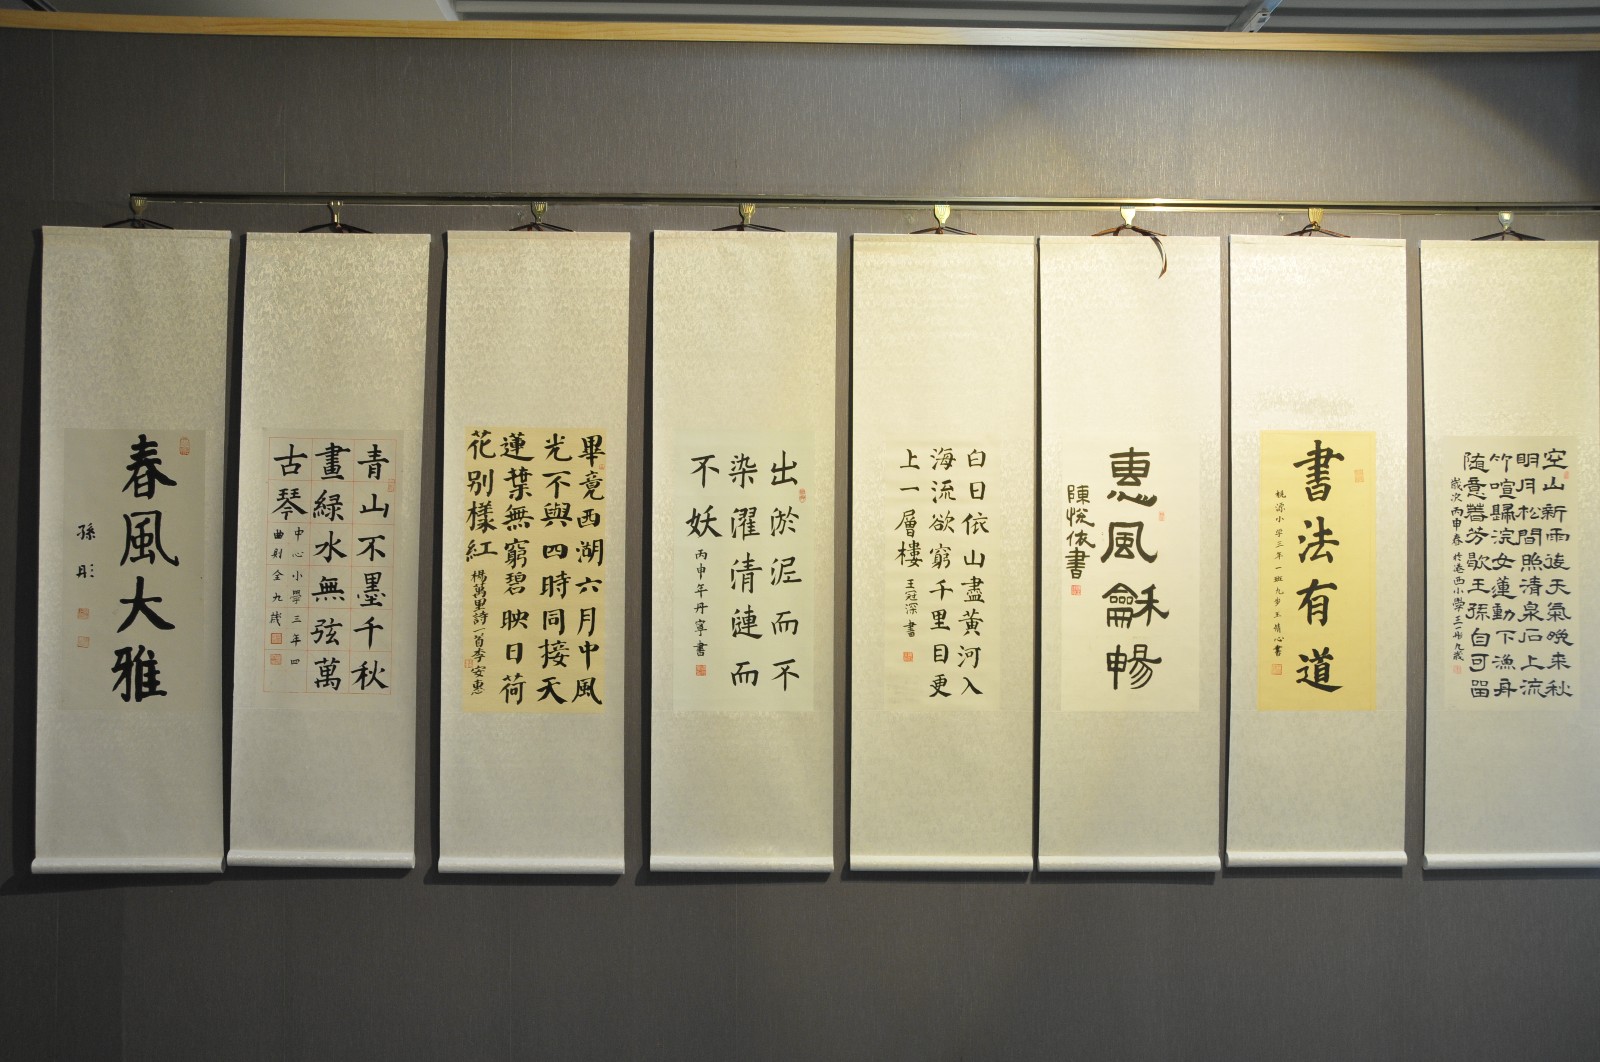 春風大雅
孫彤
青山不墨千秋
畫綠水無弦萬
古琴
中心小學三年四
九歲
畢竟西湖六月中風
光不與四時同接天
蓮葉無窮碧映日荷
花別樣紅 楊萬里詩一首李安惠
出淤泥而不
染濯清漣而
不妖 丙申年丹寧書
白日依山盡黃河入
海流欲窮千里目更
上一層樓 王冠深書
惠風龢暢
陳悅依書
書法有道
源小学三年一班九岁王婧心書
空山新雨後天氣晚来秋
明月松間照清泉石上流
竹喧歸浣女蓮動下漁舟
随意春芳歇王孫自可留
歲次丙申春 港西小學王一彤九歲